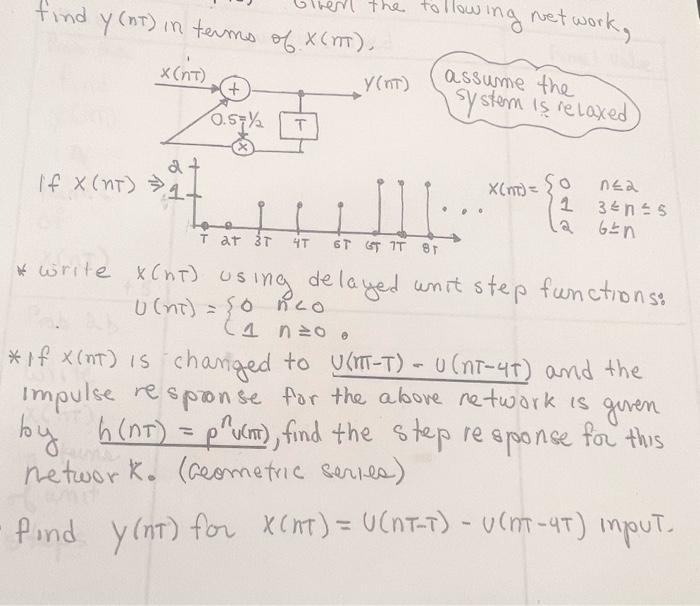 Given the following network,
find y(nT) in terms of X(nT).
X(nT)
+
Y(nT)
assume the
system is relaxed
0.5=1/2
T
X
If X(nT) ⇒
2
1
...
T 2T 3T 4T 5T 6T 7T 8T
X(nT) = { 0 n≤2
1 3≤n≤5
2 6≤n
* write x(nT) using delayed unit step functions:
U(nT) = { 0 n<0
{ 1 n≥0 .
* If X(nT) is changed to U(nT-T) - U(nT-4T) and the
impulse response for the above network is given
by h(nT) = pⁿu(nT), find the step response for this
network. (Geometric series)
find y(nT) for X(nT) = U(nT-T) - U(nT-4T) input.